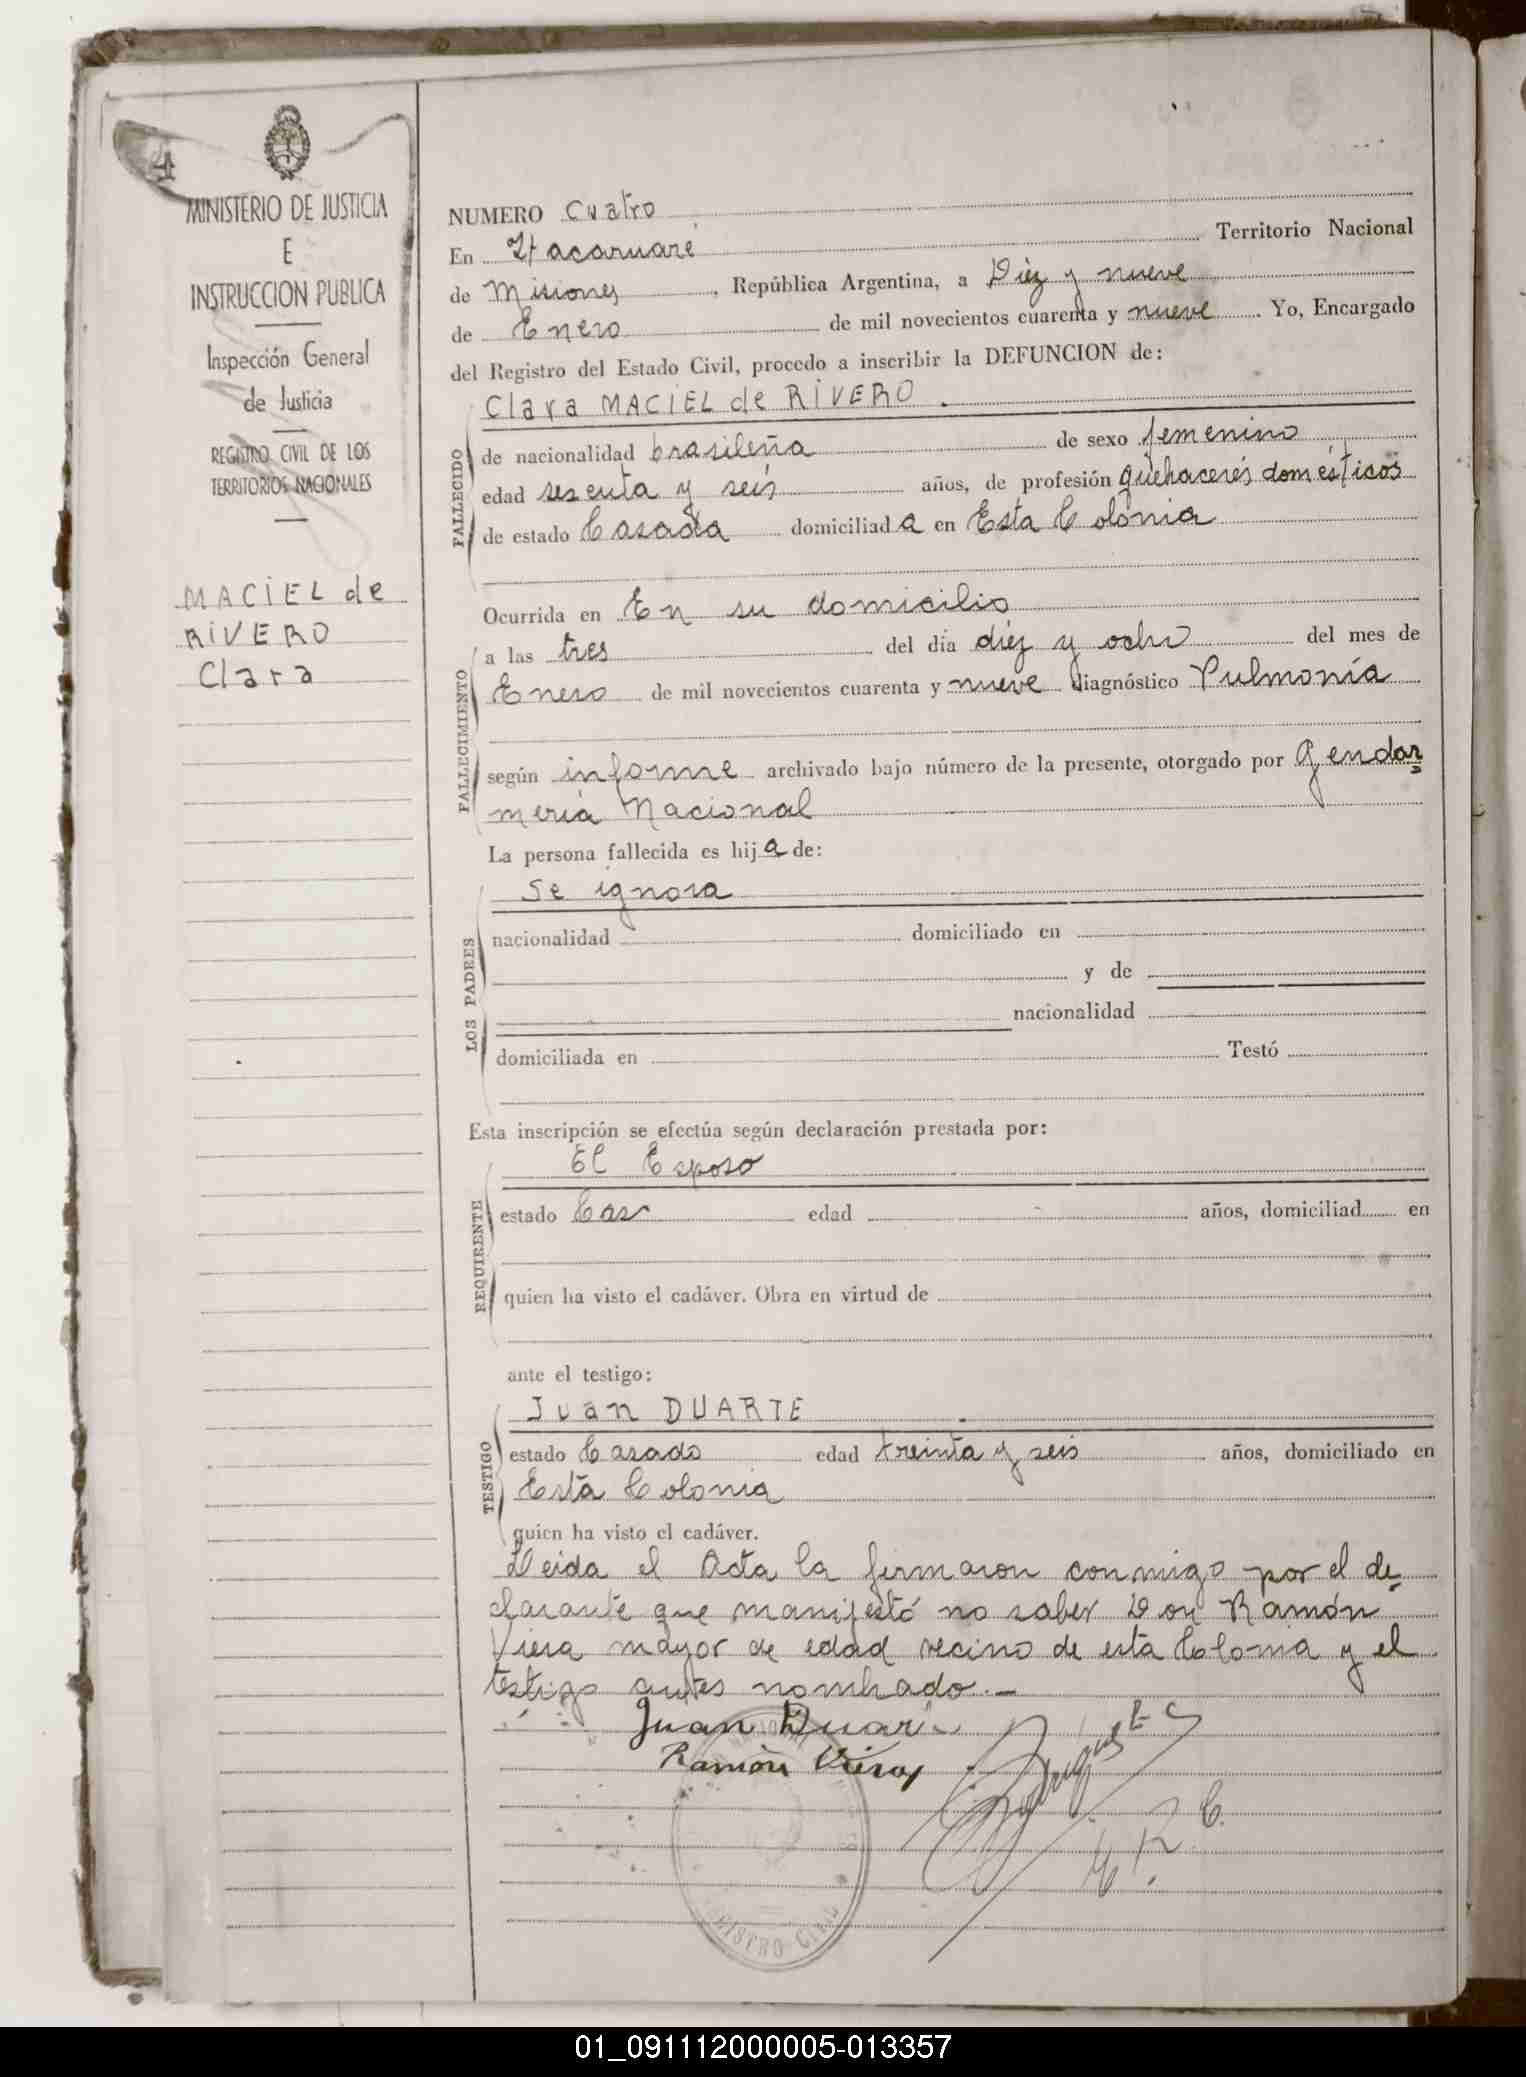 4
MINISTERIO DE JUSTICIA
E
INSTRUCCION PUBLICA
Inspección General
de Justicia
REGISTRO CIVIL DE LOS
TERRITORIOS NACIONALES
MACIEL de
RIVERO
Clara
NUMERO Cuatro
En Itacaruaré Territorio Nacional
de Misiones, República Argentina, a Diez y nueve
de Enero de mil novecientos cuarenta y nueve. Yo, Encargado
del Registro del Estado Civil, procedo a inscribir la DEFUNCION de:
FALLECIDO
Clara MACIEL de RIVERO.
de nacionalidad brasileña de sexo femenino
edad sesenta y seis años, de profesión quehaceres domésticos
de estado Casada domiciliada en Esta Colonia
FALLECIMIENTO
Ocurrida en En su domicilio
a las tres del día diez y ocho del mes de
Enero de mil novecientos cuarenta y nueve diagnóstico Pulmonía
según informe archivado bajo número de la presente, otorgado por Gendar=
mería Nacional
LOS PADRES
La persona fallecida es hija de:
Se ignora
nacionalidad domiciliado en
y de
nacionalidad
domiciliada en Testó
Esta inscripción se efectúa según declaración prestada por:
REQUIRENTE
El Esposo
estado Cas edad años, domiciliad en
quien ha visto el cadáver. Obra en virtud de
ante el testigo:
TESTIGO
Juan DUARTE
estado Casado edad treinta y seis años, domiciliado en
Esta Colonia
quien ha visto el cadáver.
Leida el Acta la firmaron conmigo por el de
clarante que manifestó no saber Don Ramón
Viera mayor de edad vecino de esta Colonia y el
testigo antes nombrado.—
Juan Duarte
Ramón Viera
E. R. C.
REGISTRO CIVIL
01_091112000005-013357